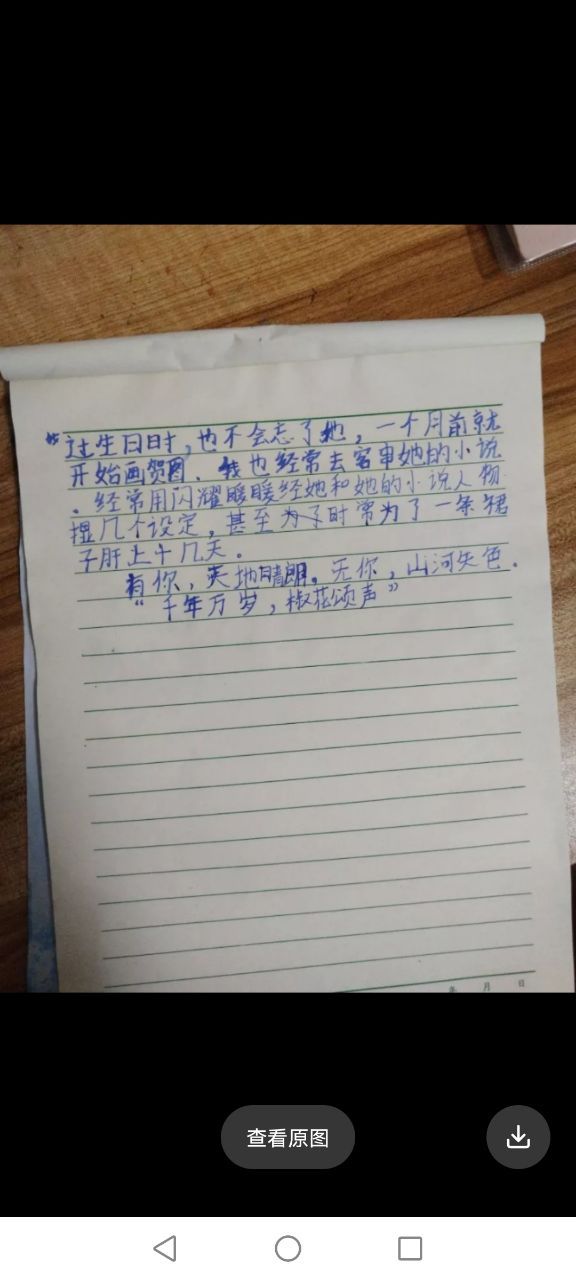 过生日时，也不会忘了她，一个月前就
开始画贺图．我也经常去客串她的小说
．经常用闪耀暖暖经她和她的小说人物
捏几个设定，甚至时常为了一条裙
子肝上十几天。
有你，天地晴朗。无你，山河失色．
“千年万岁，椒花颂声”
年 月 日
查看原图